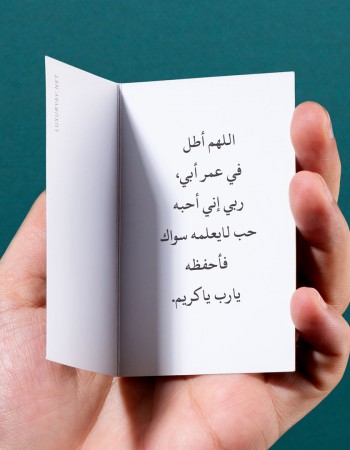 اللهم أطل
في عمر أبي،
ربي إني أحبه
حب لايعلمه سواك
فأحفظه
يارب ياكريم.
LUXURYAY.NET